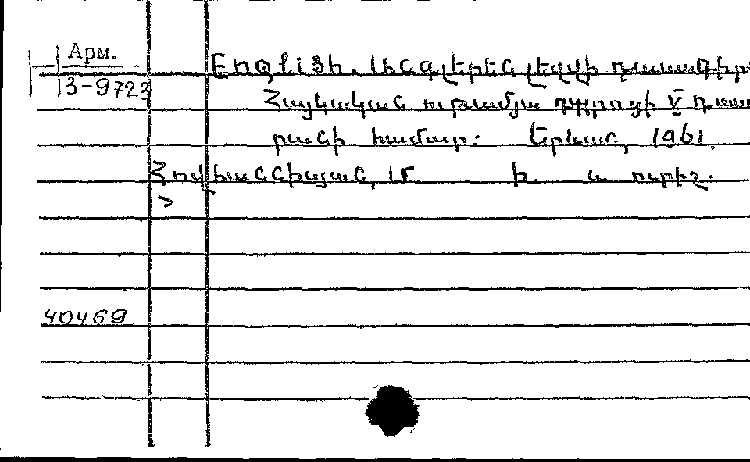 Арм.
3-9723
English. Անգլերեն լեզվի դասագիրք
Հայկական ութամյա դպրոցի V դաս
րանի համար: Երևան, 1961.
Հովհաննիսյան, Մ. և ուրիշ.
40469